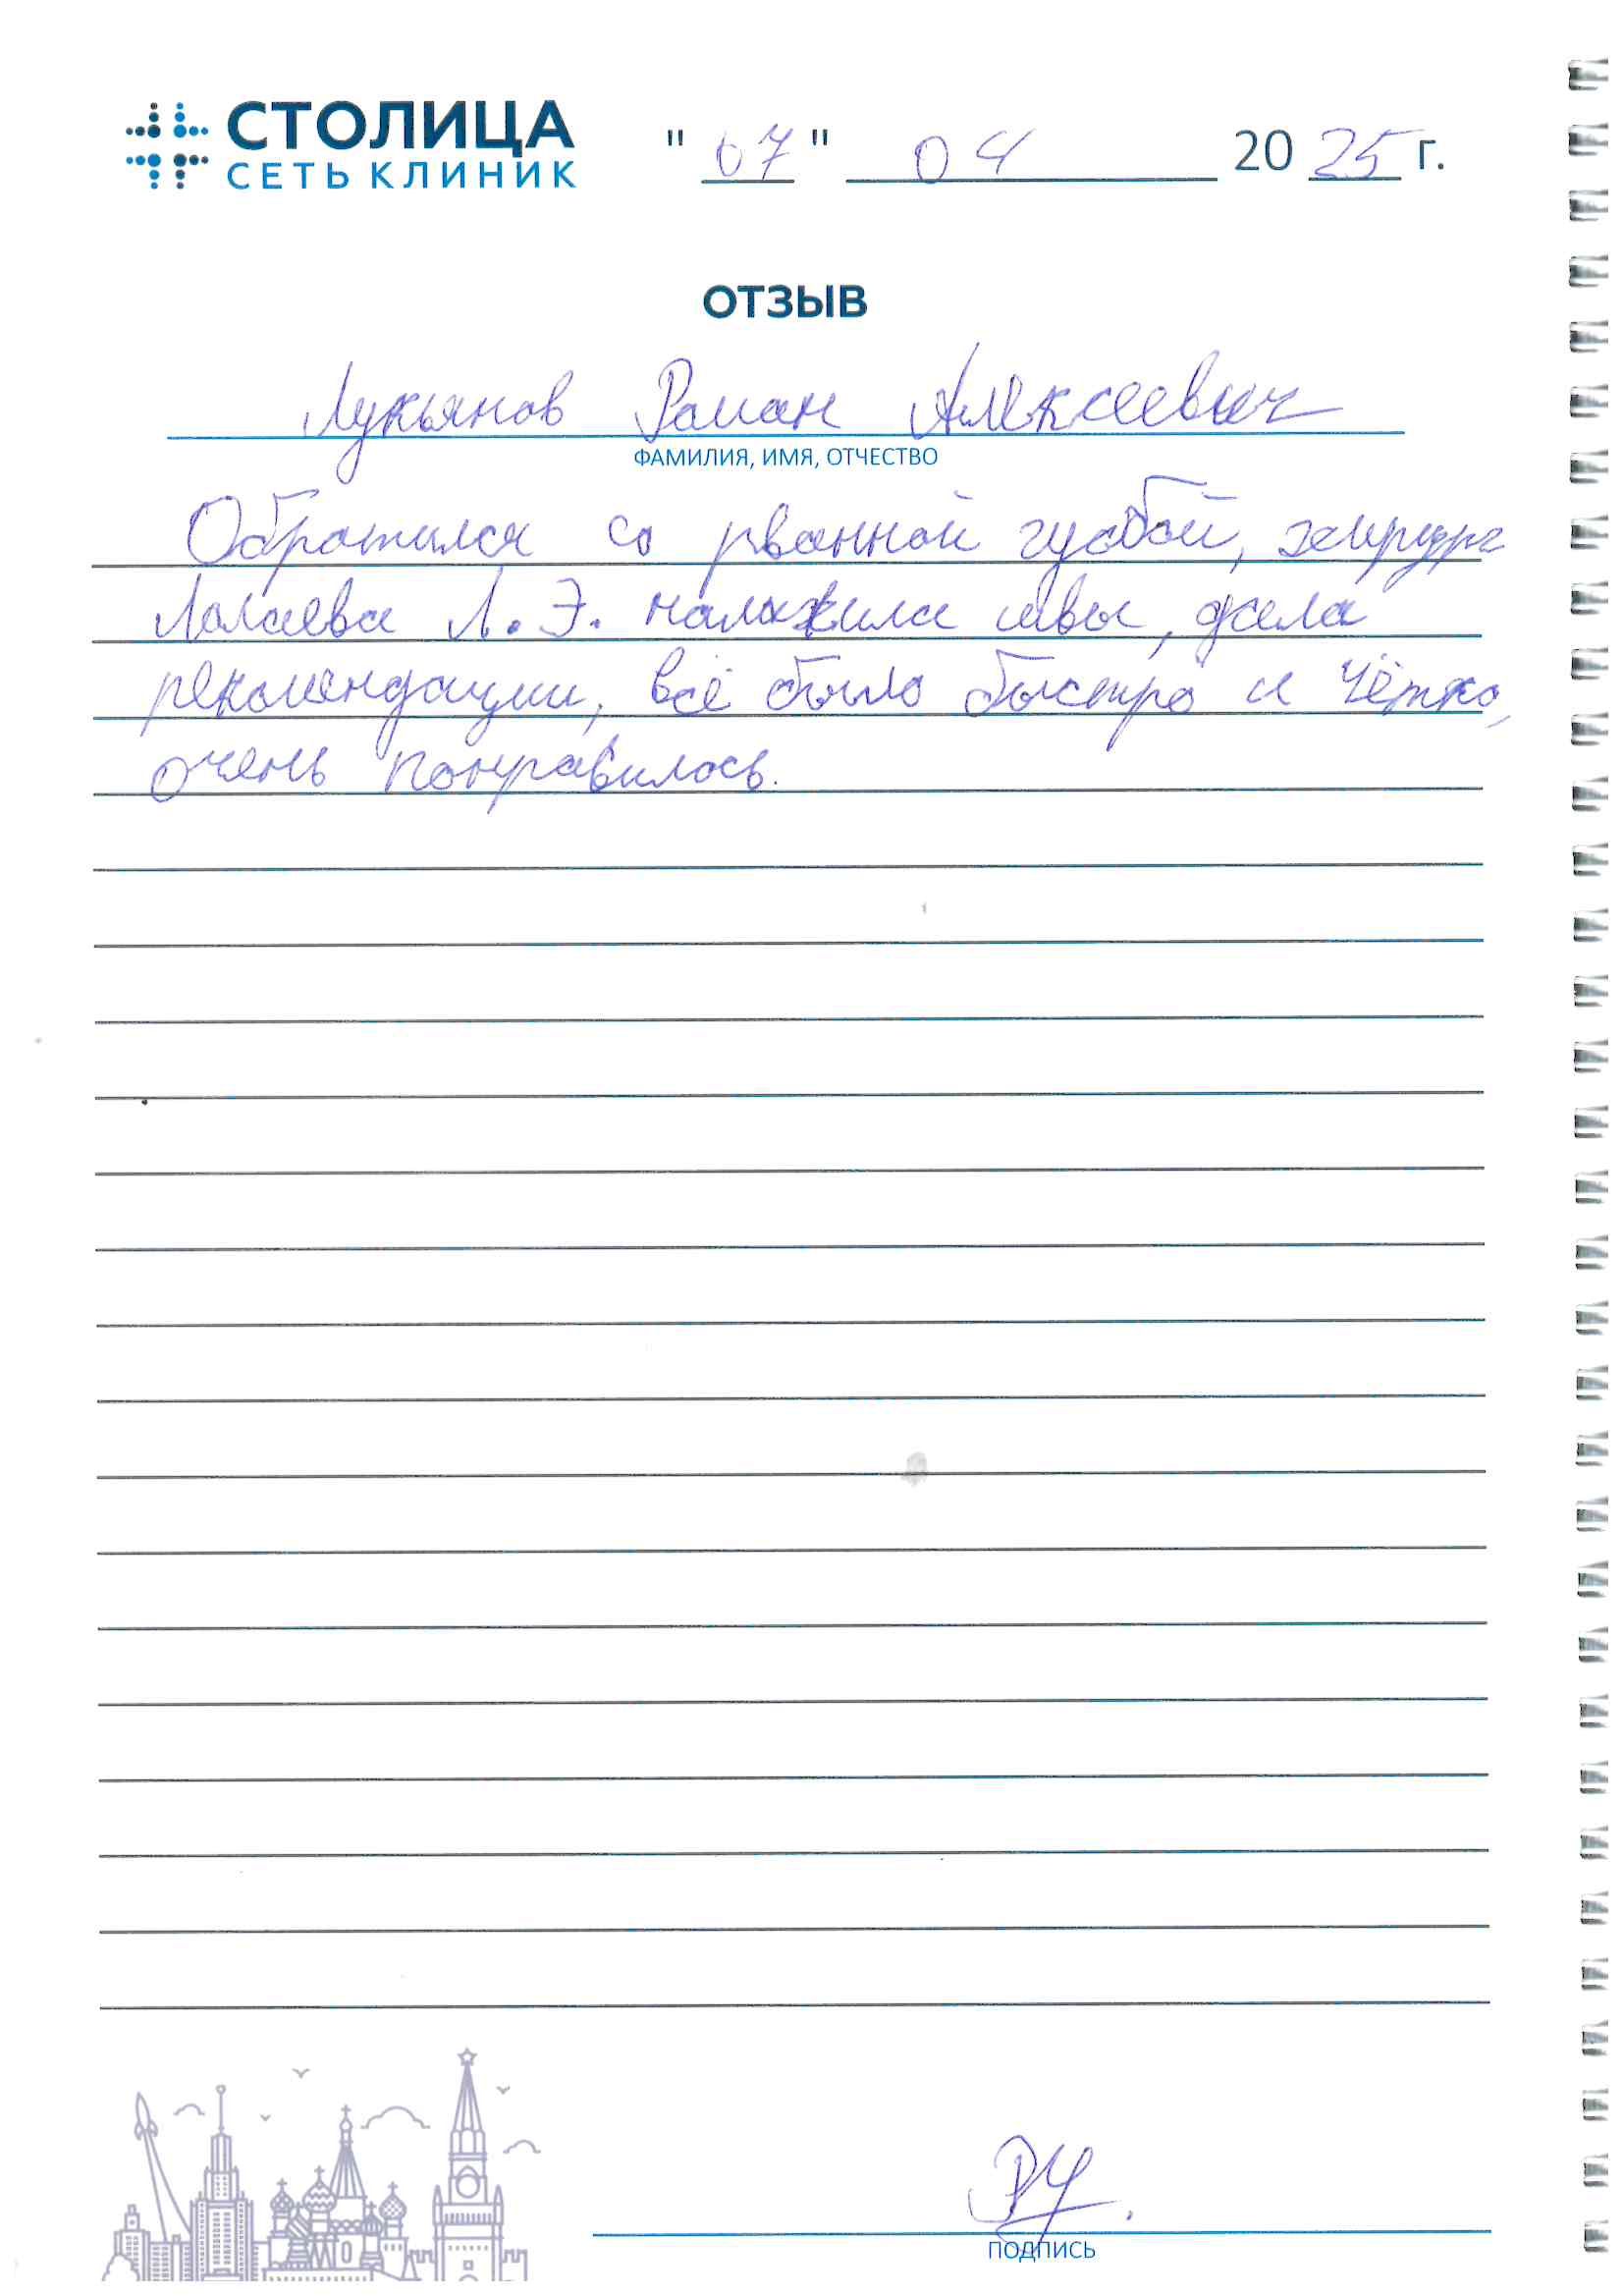 СТОЛИЦА
СЕТЬ КЛИНИК
" 07 " 04 2025 г.
ОТЗЫВ
Лукьянов Роман Алексеевич
ФАМИЛИЯ, ИМЯ, ОТЧЕСТВО
Обратился со рванной губой, хирург
Лолаева Л. Э. наложила швы, дала
рекомендации, всё было быстро и чётко,
очень понравилось.
ПОДПИСЬ